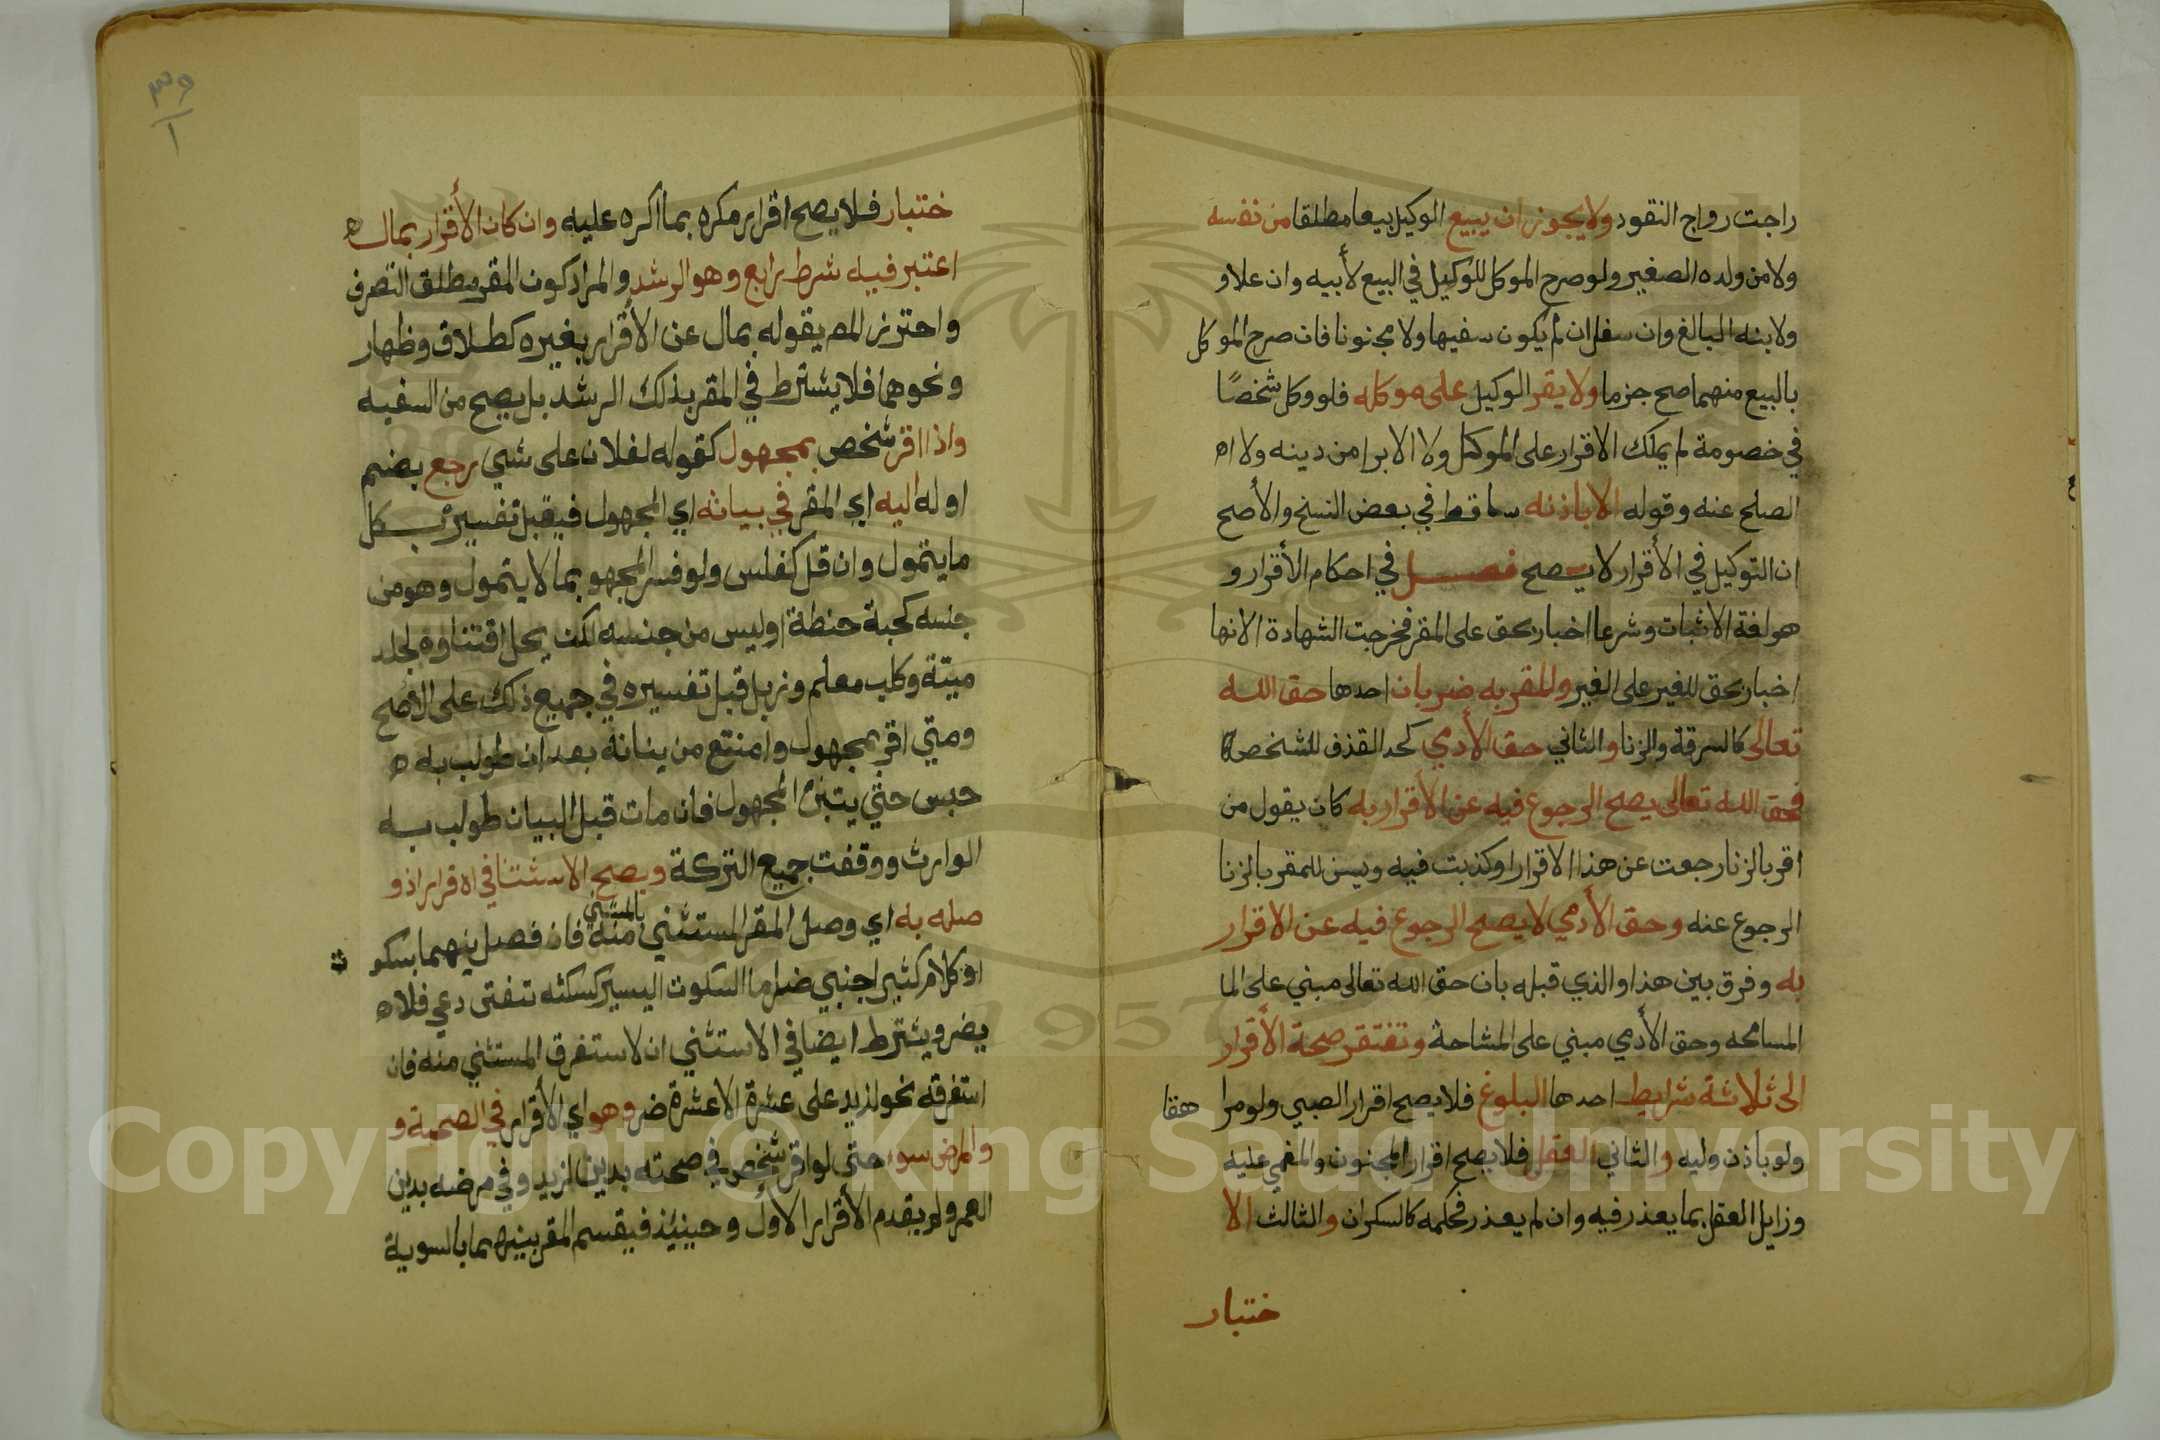 راجت رواج النقود ولا يجوز ان يبيع الوكيل بيعا مطلقا من نفسه
ولا من ولده الصغير ولو صرح الموكل للوكيل في البيع لأبيه وان علا و
ولابنه البالغ وان سفل ان لم يكون سفيها ولا مجنونا فان صرح الموكل
بالبيع منهما صح جزما ولا يقر الوكيل على موكله فلو وكل شخصًا
في خصومة لم يملك الاقرار على الموكل ولا الابرا من دينه ولا
الصلح عنه وقوله الا باذنه ساقط في بعض النسخ والأصح
ان التوكيل في الأقرار لا يصح فصل في احكام الأقرار و
هو لغة الاثبات وشرعا اخبار بحق على المقر فخرجت الشهادة لانها
اخبار بحق للغير على الغير والمقر به ضربان احدها حق الله
تعالى كالسرقة والزنا والثاني حق الأدمي كحد القذف للشخص
فحق الله تعالى يصح الرجوع فيه عن الأقرار به كان يقول من
اقر بالزنا رجعت عن هذا الاقرار او كذبت فيه ويسن للمقر بالزنا
الرجوع عنه وحق الأدمي لا يصح الرجوع فيه عن الاقرار
به وفرق بين هذا والذي قبله بان حق الله تعالى مبني على الما
المسامحه وحق الأدمي مبني على المشاحة وتفتقر صحة الأقرار
الى ثلاثة شرايط احدها البلوغ فلا يصح اقرار الصبي ولو مرا هقا
ولو باذن وليه والثاني العقل فلا يصح اقرار المجنون والمغمي عليه
وزايل العقل بما يعذر فيه وان لم يعذر فحكمه كالسكران والثالث الا
ختبار
٣٩
١
ختبار فلا يصح اقرار مكره بما اكره عليه وان كان الأقرار بمال
اعتبر فيه شرط رابع وهو الرشد والمراد كون المقر مطلق التصرف
واحترز المص بقوله بمال عن الأقرار بغيره كطلاق وظهار
ونحوهما فلا يشترط في المقر بذلك الرشد بل يصح من السفيه
واذا اقر شخص بمجهول كقوله لفلان على شي رجع بضم
اوله اليه اي المقر في بيانه اي المجهول فيقبل تفسيره بكل
ما يتمول وان قل كفلس ولو فسر المجهو بما لا يتمول وهو من
جنسه كحبة حنطة او ليس من جنسه لكن يحل اقتناوه كجلد
ميتة وكلب معلم وزبل قبل تفسيره في جميع ذلك على الاصح
ومتي اقر بمجهول وامتنع من بيانه بعد ان طولب به
حبس حتي يتبين المجهول فان مات قبل البيان طولب به
الوارث ووقفت جميع التركة ويصح الاستثنا في الاقرار اذ و
صله به اي وصل المقر المستثني بالمستثني منه فان فصل بينهما بسكو ت
او كلام كثير اجنبي ضر اما السكوت اليسير كسكته تنفس دعي فلا
يضر ويشترط ايضا في الاستثني ان لا ستغرق المستثني منه فان
استغرقه نحو لزيد على عشرة الا عشرة ضر وهو اي الأقرار في الصحة و
والمرض سوء حتى لو اقر شخص في صحته بدين لزيد وفي مرضه بدين
لعمرو لم يقدم الأقرار الأول وحينيذ فيقسم المقر بينهما بالسوية
Copyright © King Saud University
1957